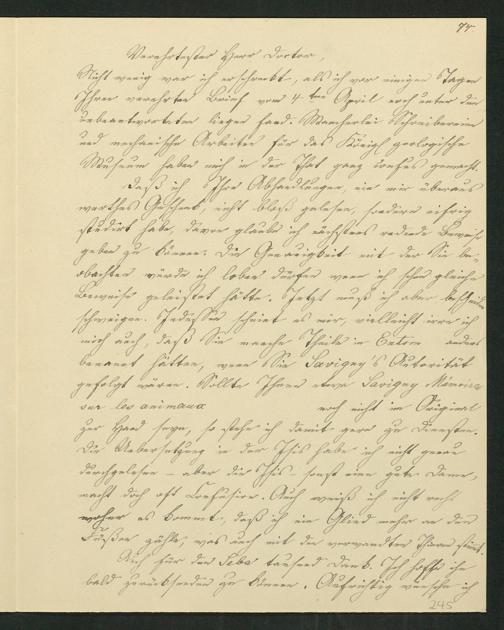 77.
Verehrtester Herr Doctor,
Nicht wenig war ich erschreckt, als ich vor einigen Tagen
Ihren verehrten Brief vom 4ten April noch unter den
unbeantworteten liegen fand. Mancherlei Schreibereien
und mechanische Arbeiten für das Königl. zoologische
Museum haben mich in der That ganz confus gemacht.
Daß ich Ihre Abhandlungen, ein mir überaus
werthes Geschenk, nicht bloß gelesen, sondern eifrig
studirt habe, davon glaube ich nächstens redende Beweise
geben zu können. Die Genauigkeit mit der Sie be-
obachten würde ich loben dürfen wenn ich schon gleiche
Beweise geleistet hätte. Jetzt muß ich aber bescheiden
schweigen. Indessen scheint es mir, vielleicht irre ich
mich auch, daß Sie manche Theile anders
benannt hätten, wenn Sie Savigny's Autorität
gefolgt wären. Sollte Ihnen Savigny Mémoires
sur les animaux noch nicht im Original
zur Hand seyn, so stehe ich damit gern zu Diensten.
Die Uebersetzung in der Isis habe ich nicht genau
durchgelesen – aber die Isis, sonst eine gute Dame,
macht doch oft Confusion. Auch weiß ich nicht recht
woher es kommt, daß ich ein Glied mehr an den
Füßen zähle, was auch mit den verwandten Thieren stimmt.
Auch für den Seba tausend Dank. Ich hoffe ihn
bald zurücksenden zu können. Aufrichtig wünsche ich
245